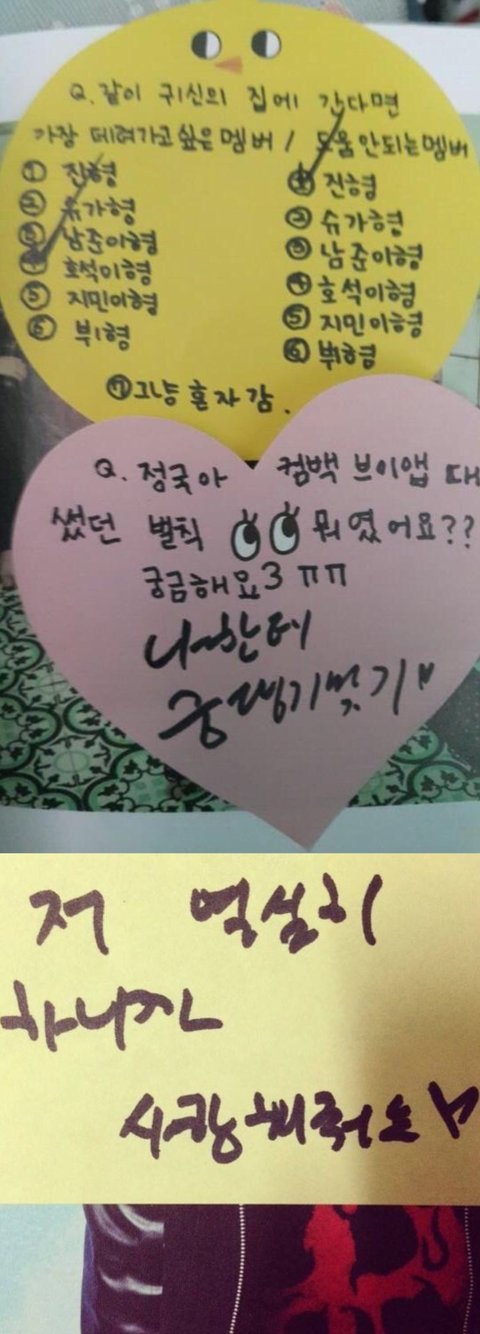 Q. 같이 귀신의 집에 간다면
가장 데려가고싶은멤버 / 도움안되는멤버
① 진형 ① 진형
② 슈가형 ② 슈가형
③ 남준이형 ③ 남준이형
④ 호석이형 ④ 호석이형
⑤ 지민이형 ⑤ 지민이형
⑥ 뷔형 ⑥ 뷔형
⑦ 그냥 혼자감.
Q. 정국아 컴백 브이앱 때
썼던 벌칙 뭐였어요??
궁금해요3 ㅠㅠ
나한테
저 열심히
하니까
사랑해줘요♥